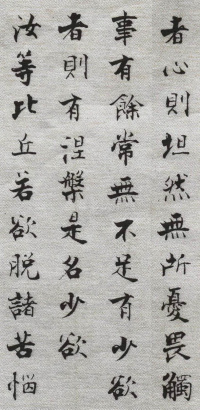 者心則坦然無所憂畏觸
事有餘常無不足有少欲
者則有涅槃是名少欲
汝等比丘若欲脱諸苦惱